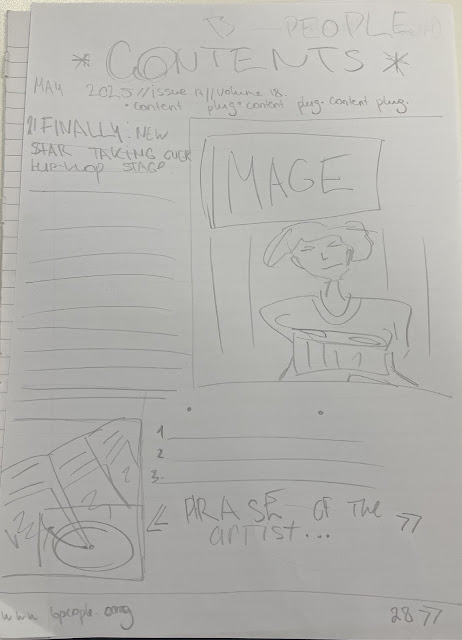 PEOPLE
* CONTENTS *
MAY 2023 // issue 12 // volume 18.
• content plug • content plug • content plug.
11 FINALLY: NEW
STAR TAKING OVER
HIP-HOP STAGE
IMAGE
1
2
3.
<< PHRASE OF THE >>
artist...
www
28 >>